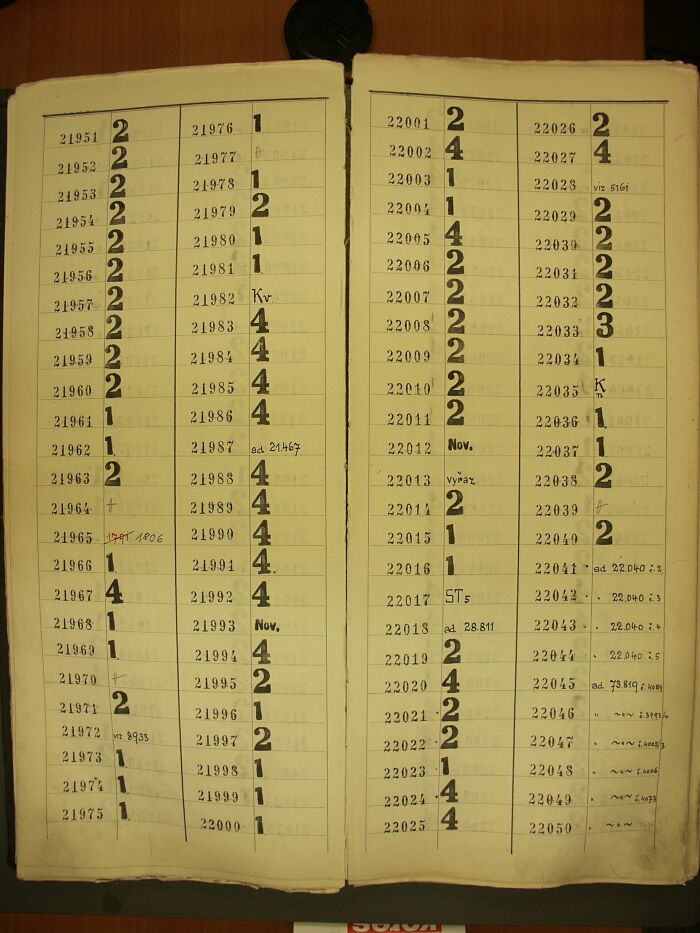 21951 2
21952 2
21953 2
21954 2
21955 2
21956 2
21957 2
21958 2
21959 2
21960 2
21961 1
21962 1.
21963 2
21964 +
21965 1791 1806
21966 1
21967 4
21968 1
21969 1.
21970 +
21971 2
21972 viz 8933
21973 1.
21974 1.
21975 1.
21976 1
21977 +
21978 1
21979 2
21980 1
21981 1.
21982 Kv.
21983 4
21984 4
21985 4
21986 4
21987 ad 21.467
21988 4
21989 4
21990 4
21991 4.
21992 4
21993 Nov.
21994 4
21995 2
21996 1
21997 2
21998 1
21999 1
22000 1
22001 2
22002 4
22003 1
22004 1
22005 4
22006 2
22007 2
22008 2
22009 2
22010 2
22011 2
22012 Nov.
22013 vyřaz.
22014 2
22015 1
22016 1
22017 ST5
22018 ad 28.811
22019 2
22020 4
22021 2
22022 2
22023 1
22024 4
22025 4
22026 2
22027 4
22028 viz 5161
22029 2
22030 2
22031 2
22032 2
22033 3
22034 1
22035 K
22036 1.
22037 1.
22038 2
22039 +
22040 2
22041 ad 22.040 i.2
22042 " 22.040 i.3
22043 " 22.040 i.4
22044 " 22.040 i.5
22045 ad 73.819 i.4089
22046 " ~"~ i.3993/4
22047 " ~"~ i.4002/3
22048 " ~"~ i.4006
22049 " ~"~ i.4073
22050 " ~"~